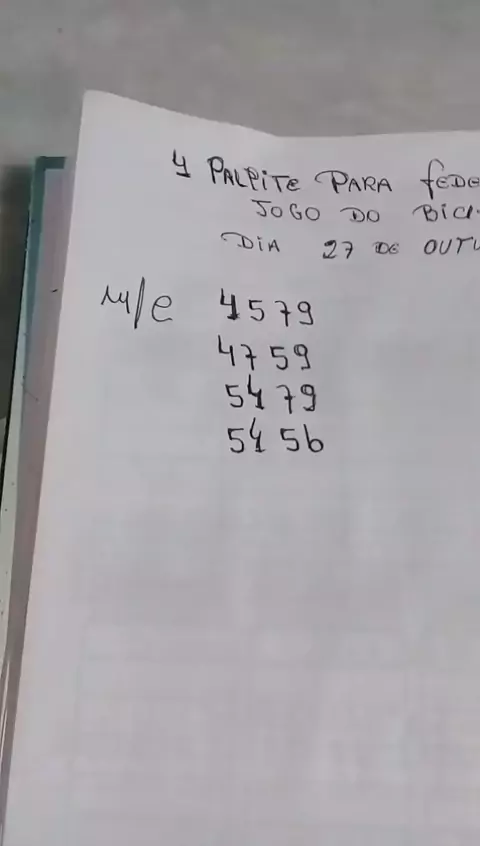 4 PALPITE PARA FEDE
JOGO DO BICH
DIA 27 DE OUTU
M/C 4579
4759
5479
5456